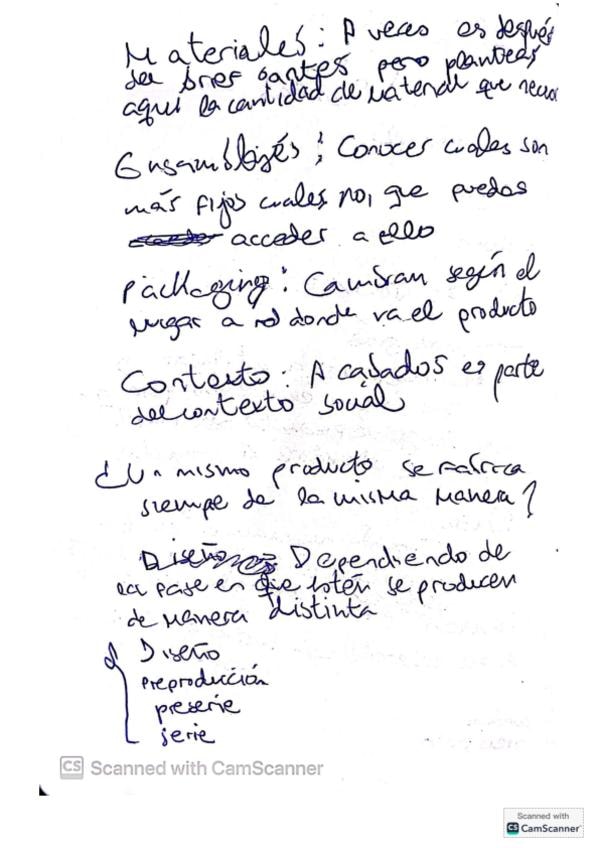 Materiales: A veces es después
del brief antes pero planteas
aquí la cantidad de material que neces
Ensamblajes: Conocer cuales son
más fijos cuales no, que puedas
acceder a ello
Packaging: Cambian según el
lugar a donde va el producto
Contexto: Acabados es parte
del contexto social
¿Un mismo producto se fabrica
siempe de la misma manera?
Diseño Dependiendo de
la fase en que estén se producen
de manera distinta
Diseño
preproducción
preserie
serie
CS Scanned with CamScanner
Scanned with
CS CamScanner